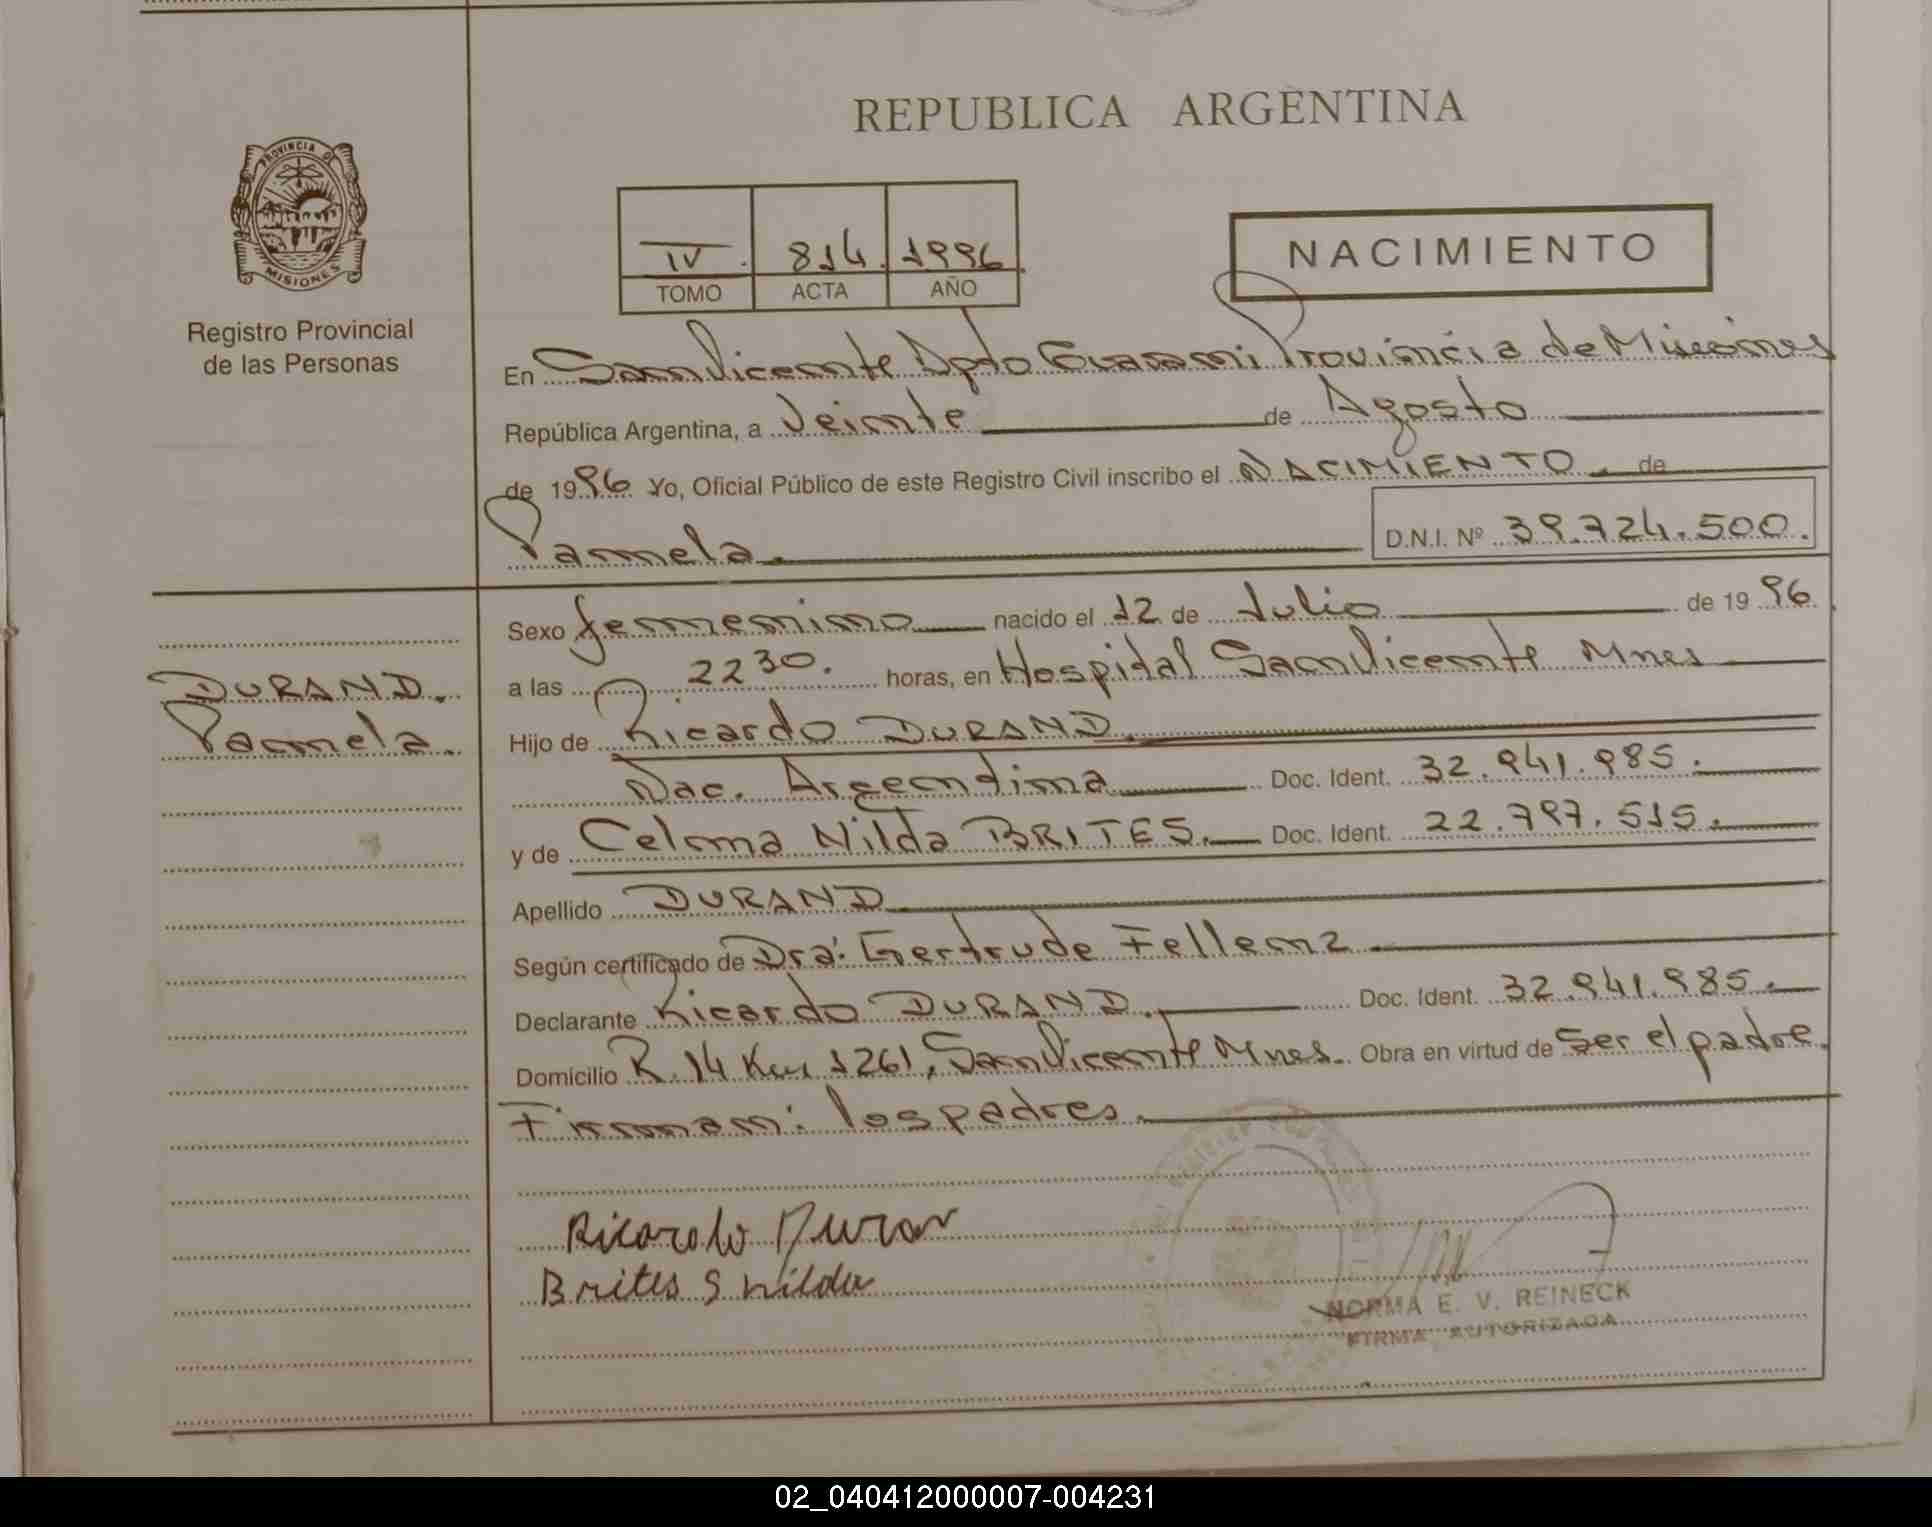 REPUBLICA ARGENTINA
PROVINCIA DE
MISIONES
Registro Provincial
de las Personas
IV. 814. 1996.
TOMO ACTA AÑO
NACIMIENTO
En San Vicente Dpto Guarani Provincia de Misiones
República Argentina, a Veinte de Agosto
de 1996 Yo, Oficial Público de este Registro Civil inscribo el NACIMIENTO de
Pamela. D.N.I. Nº 39.724.500.
Sexo femenino nacido el 12 de Julio de 1996.
a las 22 30. horas, en Hospital San Vicente Mnes
DURAND.
Pamela.
Hijo de Ricardo DURAND.
Nac. Argentina Doc. Ident. 32.941.985.
y de Celma Nilda BRITES. Doc. Ident. 22.797.515.
Apellido DURAND
Según certificado de Dra: Gertrude Fellenz
Declarante Ricardo DURAND. Doc. Ident. 32.941.985.
Domicilio R. 14 Km 1261, San Vicente Mnes. Obra en virtud de Ser el padre.
Firman: los padres.
Ricardo Duran
Brites S nilda
NORMA E. V. REINECK
FIRMA AUTORIZADA
02_040412000007-004231